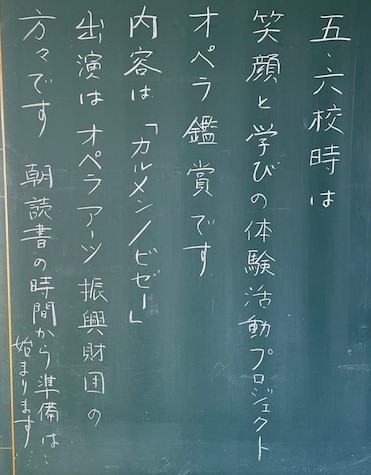 五・六校時は
笑顔と学びの体験活動プロジェクト
オペラ鑑賞です
内容は「カルメン/ビゼー」
出演はオペラアーツ振興財団の
方々です 朝読書の時間から準備は…
始まります